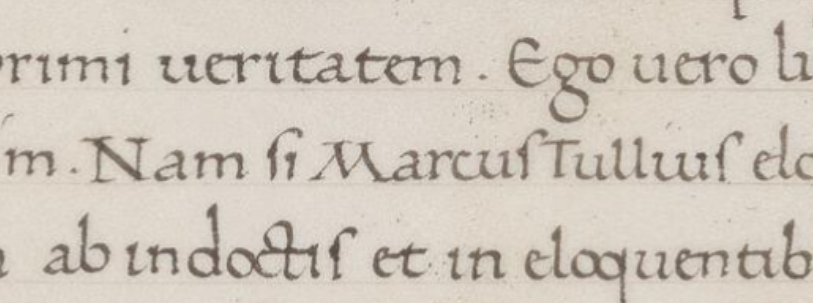 rimi ueritatem. Ego uero li
m. Nam si Marcus Tullius elo
ab indoctis et in eloquentib